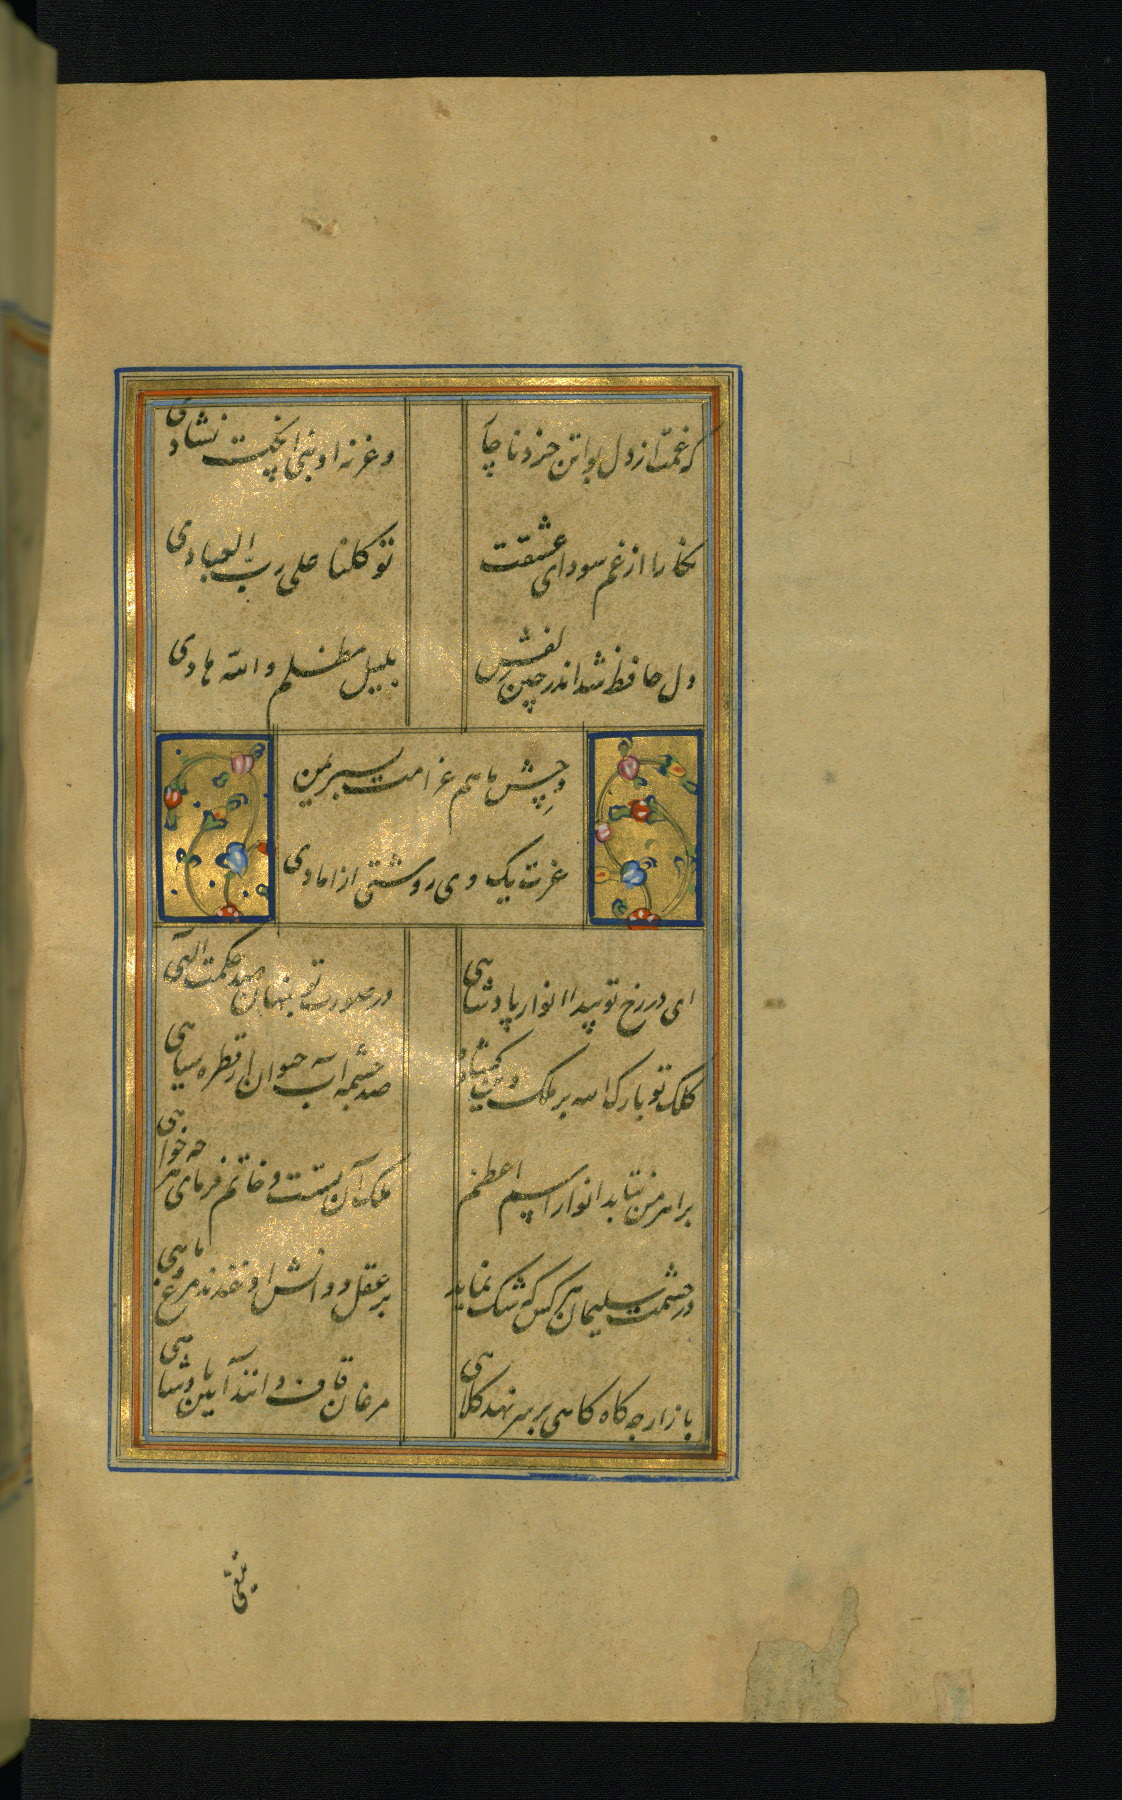 که غمت از دل بواتن خزد ناچار
وغرنه او بنی آنچت نشادی
نگارا از غم سودای عشقت
توکلنا علی رب العبادی
دل حافظ شد اندر چین زلفش
بلیل مظلم والله هادی
وپچش ماهم غرامت بسپریمن
غرت یک وی روشتی از امادی
ای در رخ تو پیدا انوار پادشاهی
در صورت تو پنهان صد حکمت الهی
کلک تو بارک الله بر ملک و دین گشاده
صد چشمه آب حیوان از قطره سیاهی
بر اهرمن نتابد انوار اسم اعظم
ملک آن تست و خاتم فرمای هر چه خواهی
در حشمت سلیمان هر کس که شک نماید
بر عقل و دانش او خندند مرغ و ماهی
باز ارچه گاه گاهی بر سر نهد کلاهی
مرغان قاف دانند آیین پادشاهی
تیغی